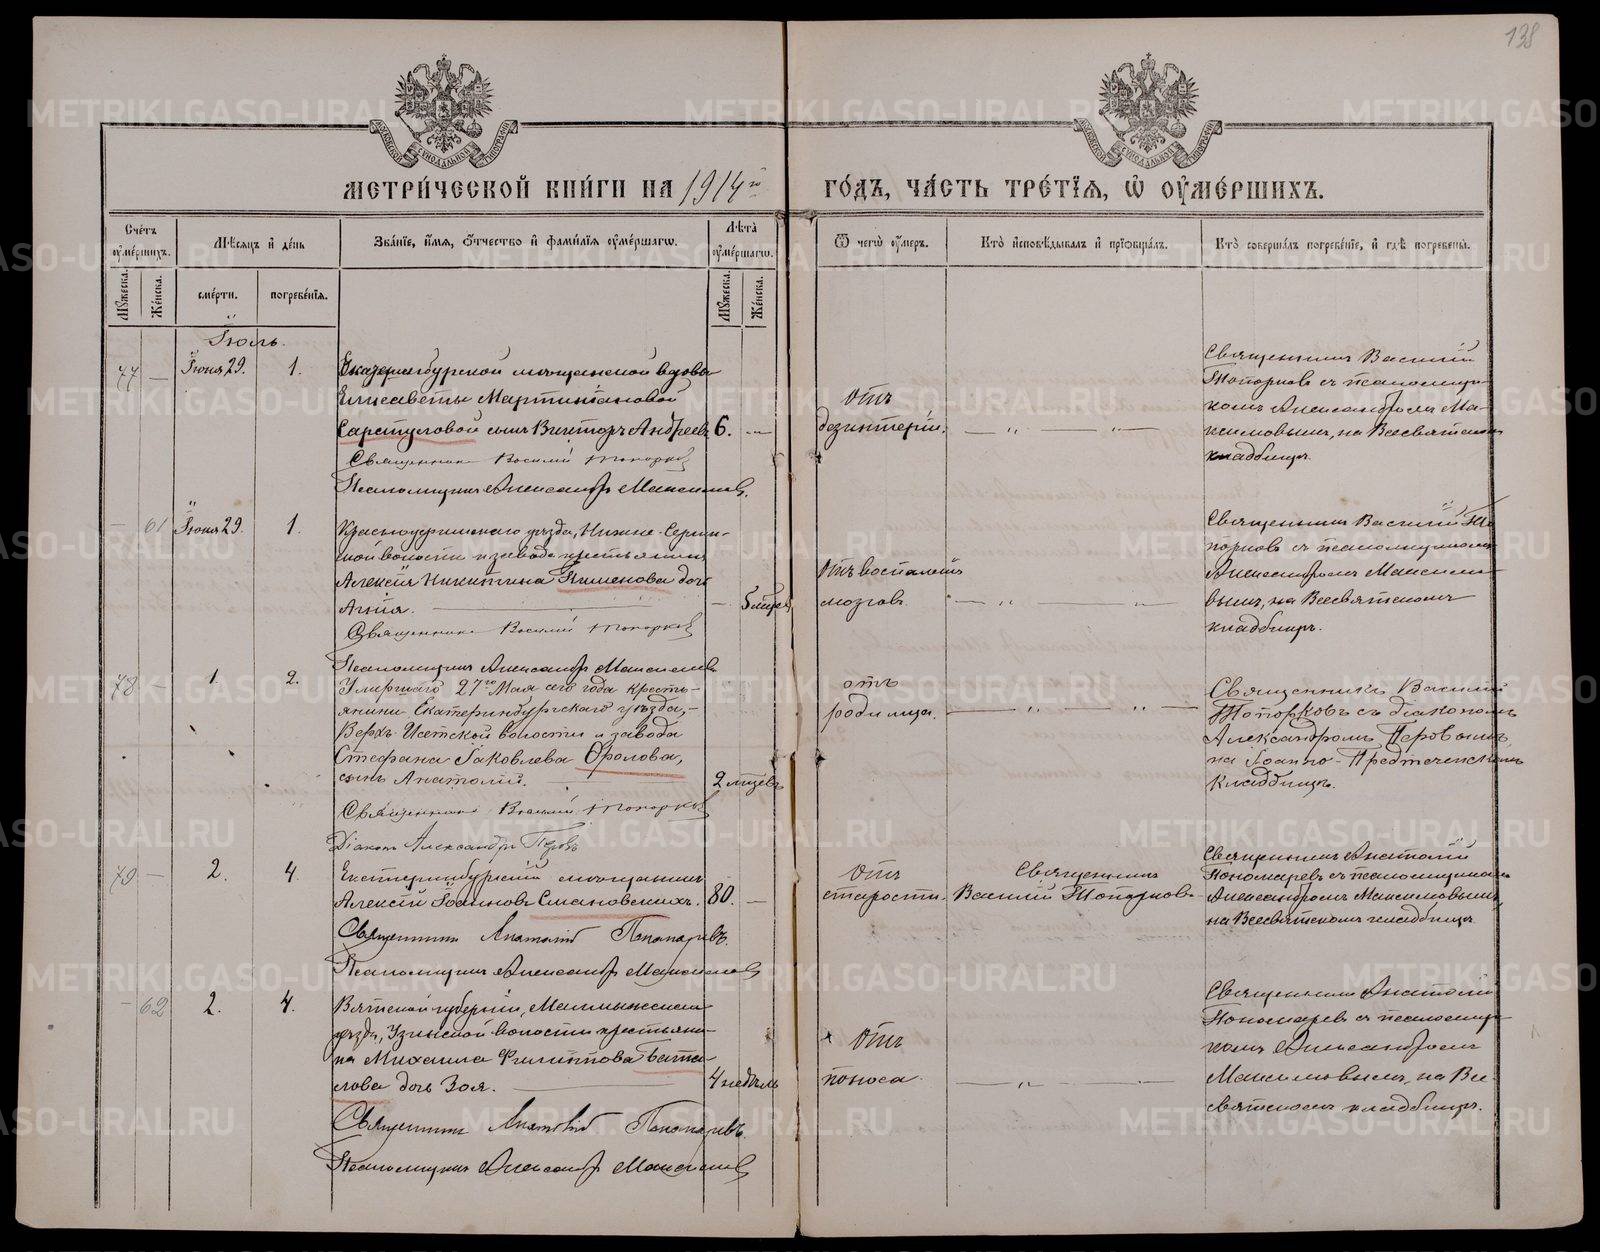 138
МОСКОВСКОЙ СѴНОДАЛЬНОЙ ТИПОГРАФІИ
МОСКОВСКОЙ СѴНОДАЛЬНОЙ ТИПОГРАФІИ
МЕТРИ́ЧЕСКОЙ КНИ́ГИ НА 1914й ГО́ДЪ, ЧА́СТЬ ТРЕ́ТЇѦ, Ѡ ОУМЕ́РШИХЪ.
Сче́тъ оуме́ршихъ.
Мꙋжеска.
Же́нска.
Мѣ́сяцъ и де́нь
сме́рти.
погребе́нїѧ.
Зва́нїе, и́мѧ, ѻ҆́тчество и фами́лїѧ оуме́ршагѡ.
Лѣ́та оуме́ршагѡ.
Мꙋжеска.
Же́нска.
Ѿ чегѡ̀ оу́меръ.
Кто̀ исповѣ́дывалъ и прїѡбща́лъ.
Кто̀ соверша́лъ погребе́нїе, и гдѣ̀ погребены̀.
Іюль.
77 — Іюня 29. 1.
Екатеринбургской мѣщанской вдовы
Елисаветы Мартиніановой
Сарстуловой сынъ Викторъ Андреевъ 6. —
Священникъ Василій Топорковъ
Псаломщикъ Александръ Максимовъ.
отъ
дезинтеріи.
— „ — „ —
Священникъ Василій
Топорковъ съ псаломщи-
комъ Александромъ Ма-
ксимовымъ, на Всесвятскомъ
кладбищѣ.
— 61 Іюня 29. 1.
Красноуфимскаго уѣзда, Нижне-Сергин-
ской волости и завода крестьянина
Алексія Никитина Пименова дочь
Агнія. — 5 мѣсяц
Священникъ Василій Топорковъ
Псаломщикъ Александръ Максимовъ
Отъ воспаленія
мозговъ.
— „ — „ —
Священникъ Василій То-
порковъ съ псаломщикомъ
Александромъ Максимо-
вымъ, на Всесвятскомъ
кладбищѣ.
78 — 1. 2.
Умершаго 27го Мая сего года кресть-
янина Екатеринбургскаго уѣзда,-
Верхъ-Исетской волости и завода
Стефана Іаковлева Фролова,
сынъ Анатолій. 2 мѣсяцевъ
Священникъ Василій Топорковъ
Діаконъ Александръ Перовъ
отъ
родимца.
— „ — „ —
Священникъ Василій
Топорковъ съ діакономъ
Александромъ Перовымъ,
на Іоанно-Предтеченскомъ
кладбищѣ.
79 — 2. 4.
Екатеринбургскій мѣщанинъ
Алексій Іоанновъ Смановскихъ. 80. —
Священникъ Анатолій Пономаревъ.
Псаломщикъ Александръ Максимовъ
Отъ
старости.
Священникъ
Василій Топорковъ.
Священникъ Анатолій
Пономаревъ съ псаломщикомъ
Александромъ Максимовымъ,
на Всесвятскомъ кладбищѣ.
— 62 2. 4.
Вятской губерніи, Малмыжскаго
уѣзда, Узинской волости крестьяни-
на Михаила Филиппова Бата-
лова дочь Зоя. 4 недѣль
Священникъ Анатолій Пономаревъ.
Псаломщикъ Александръ Максимовъ
Отъ
поноса.
— „ —
Священникъ Анатолій
Пономаревъ съ псаломщи-
комъ Александромъ
Максимовымъ, на Все-
святскомъ кладбищѣ.
METRIKI.GASO-URAL.RU